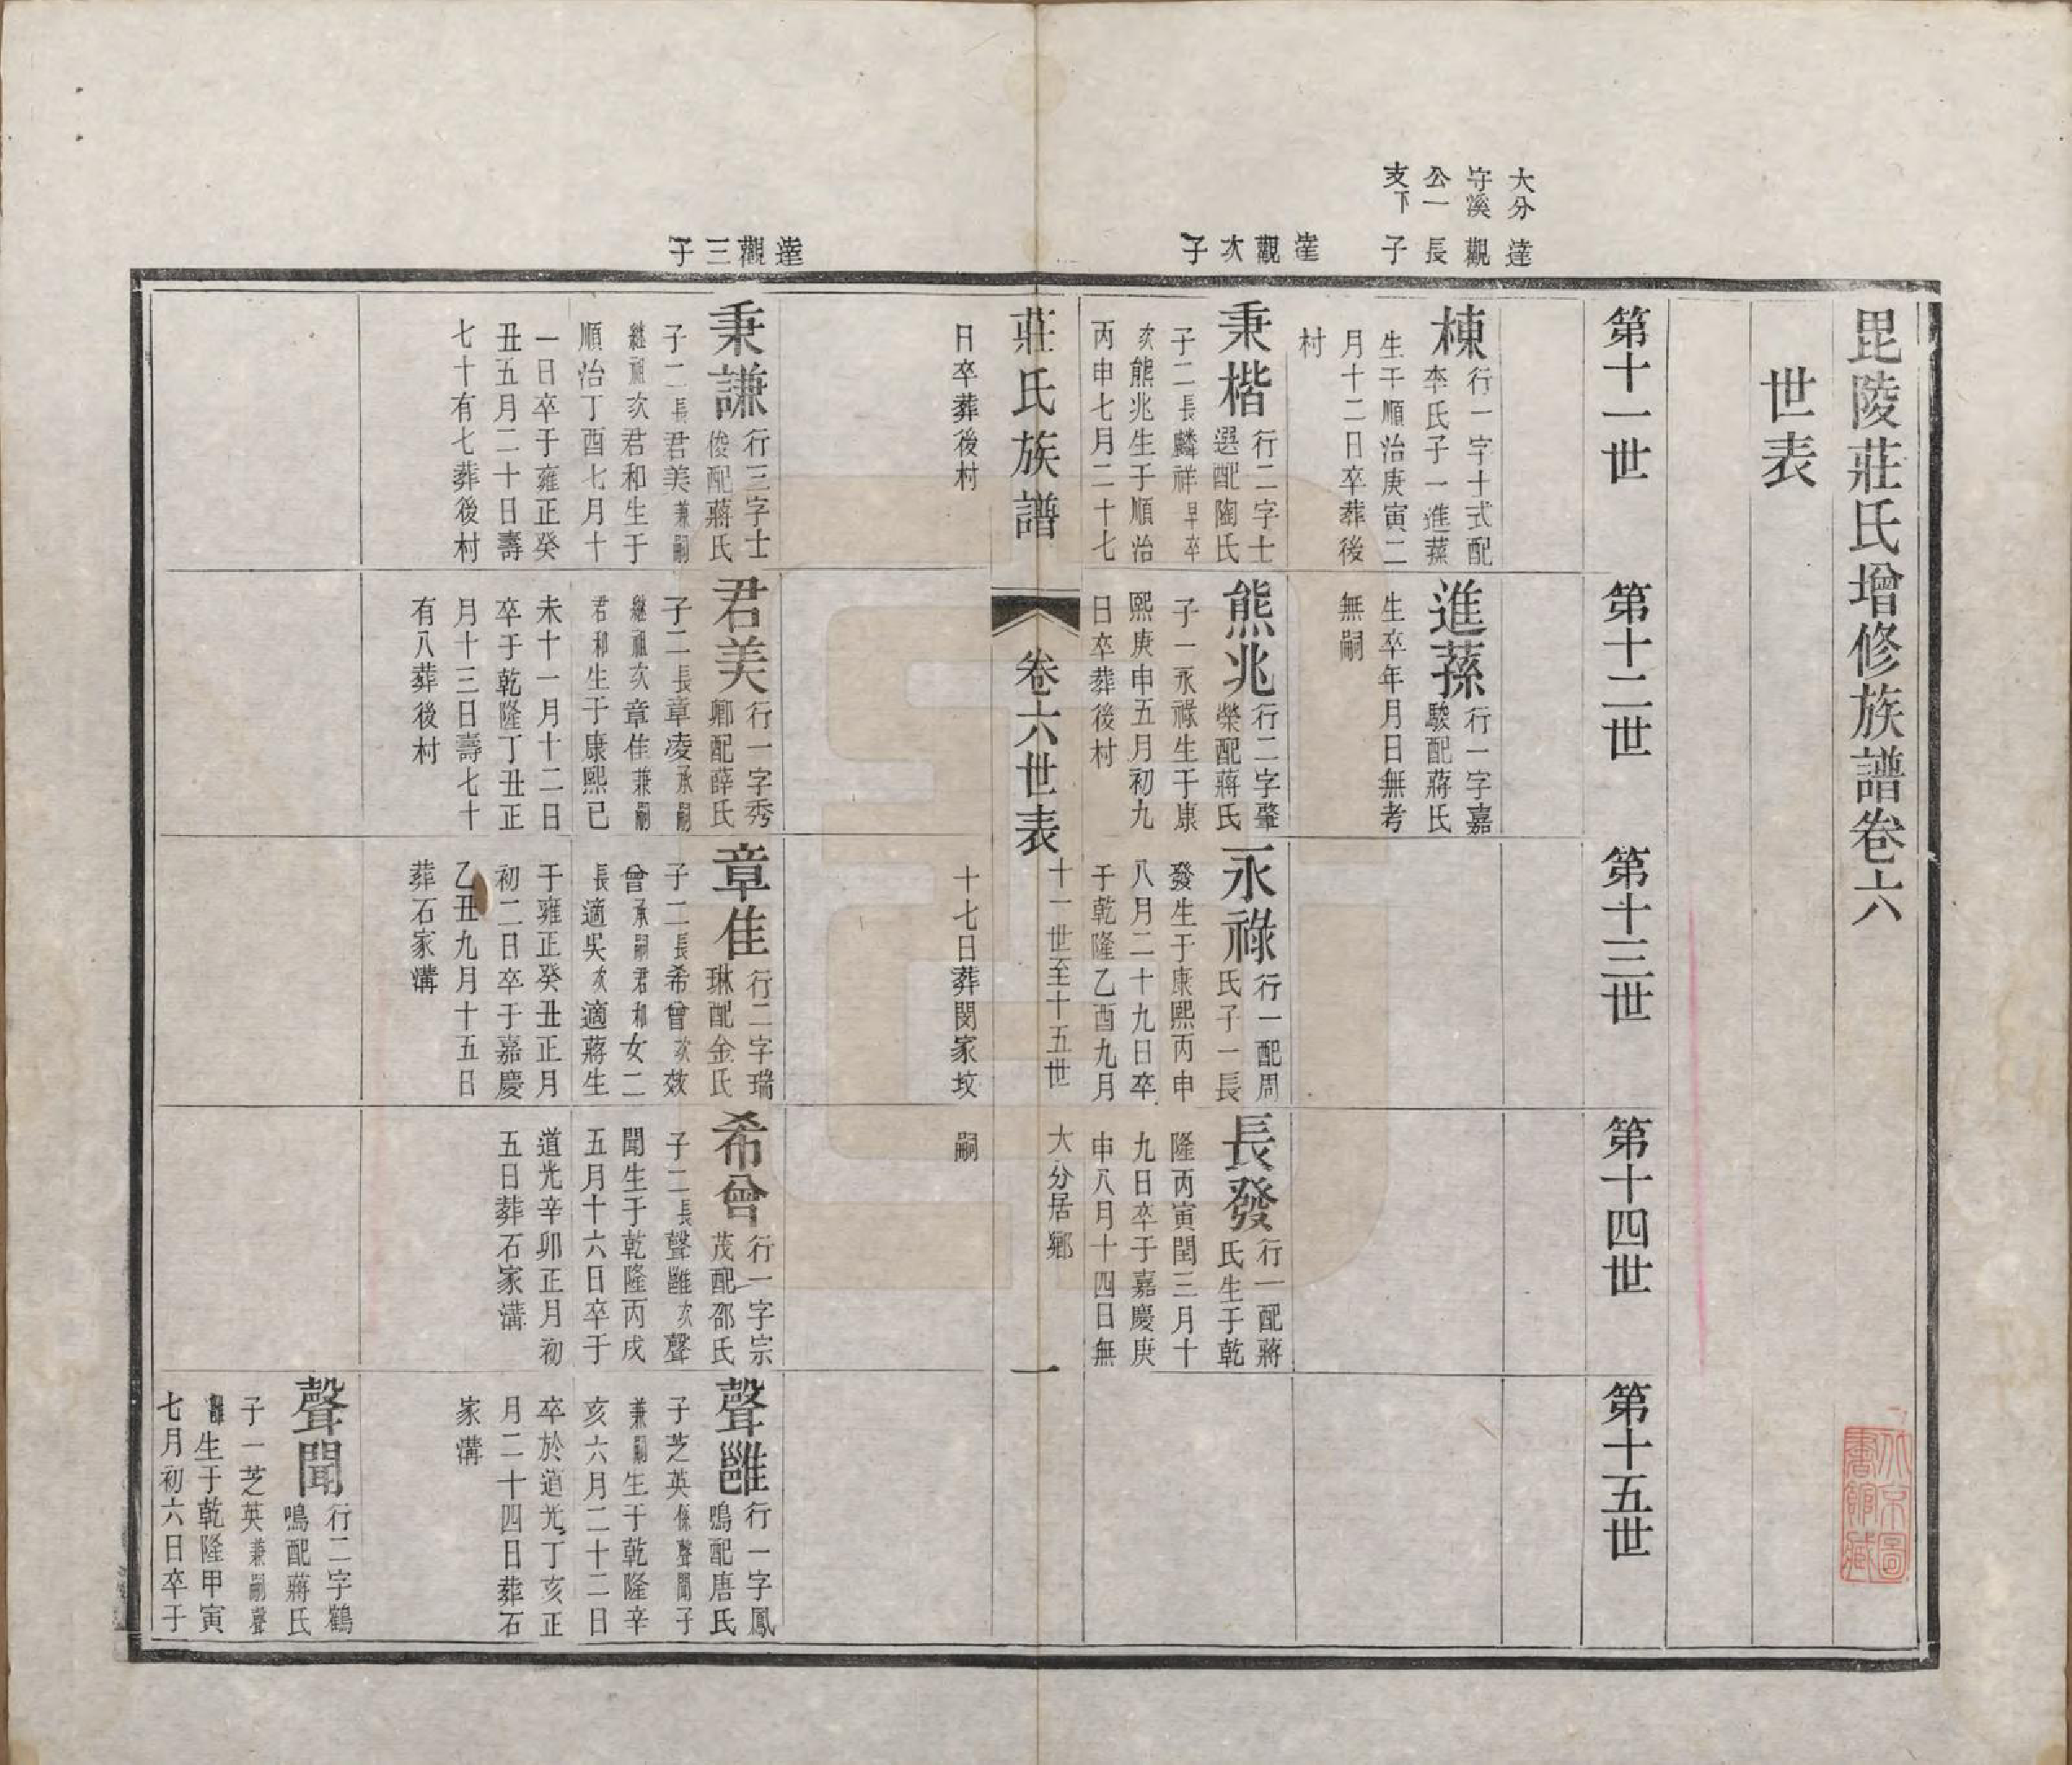 毘陵莊氏增修族譜卷六
世表
第十一世
第十二世
第十三世
第十四世
第十五世
大分
守溪
公一
支下
達觀長子
棟
行一字十式配
李氏子一進蓀
生于順治庚寅二
月十二日卒葬後
村
進蓀
行一字嘉
駿配蔣氏
生卒年月日無考
無嗣
達觀次子
秉楷
行二字士
選配陶氏
子二長麟祥早卒
次熊兆生于順治
丙申七月二十七
日卒葬後村
熊兆
行二字肇
榮配蔣氏
子一永祿生于康
熙庚申五月初九
日卒葬後村
永祿
行一配周
氏子一長
發生于康熙丙申
八月二十九日卒
于乾隆乙酉九月
十七日葬閔家坟
長發
行一配蔣
氏生于乾
隆丙寅閏三月十
九日卒于嘉慶庚
申八月十四日無
嗣
莊氏族譜
卷六世表
十一世至十五世
大分居鄉
一
達觀三子
秉謙
行三字士
俊配蔣氏
子二長君美兼嗣
繼祖次君和生于
順治丁酉七月十
一日卒于雍正癸
丑五月二十日壽
七十有七葬後村
君美
行一字秀
卿配薛氏
子二長章凌承嗣
繼祖次章佳兼嗣
君和生于康熙己
未十一月十二日
卒于乾隆丁丑正
月十三日壽七十
有八葬後村
章佳
行二字瑞
琳配金氏
子二長希曾次效
曾承嗣君和女二
長適吳次適蔣生
于雍正癸丑正月
初二日卒于嘉慶
乙丑九月十五日
葬石家溝
希曾
行一字宗
茂配邵氏
子二長聲雝次聲
聞生于乾隆丙戌
五月十六日卒于
道光辛卯正月初
五日葬石家溝
聲雝
行一字鳳
鳴配唐氏
子芝英係聲聞子
兼嗣生于乾隆辛
亥六月二十二日
卒於道光丁亥正
月二十四日葬石
家溝
聲聞
行二字鶴
鳴配蔣氏
子一芝英兼嗣聲
雝生于乾隆甲寅
七月初六日卒于
北京圖
書館藏